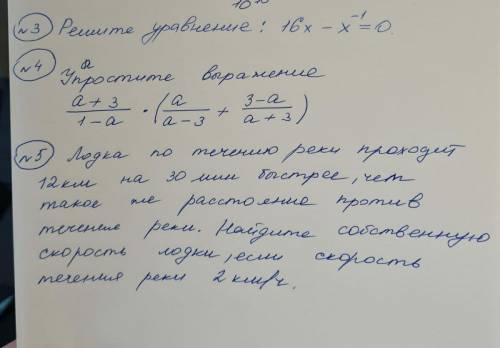 10¹⁰
№3 Решите уравнение: 16x − x⁻¹ = 0.
№4
Упростите выражение
(a+3)/(1−a) · (a/(a−3) + (3−a)/(a+3))
№5 Лодка по течению реки проходит
12 км на 30 мин быстрее, чем
такое же расстояние против
течения реки. Найдите собственную
скорость лодки, если скорость
течения реки 2 км/ч.